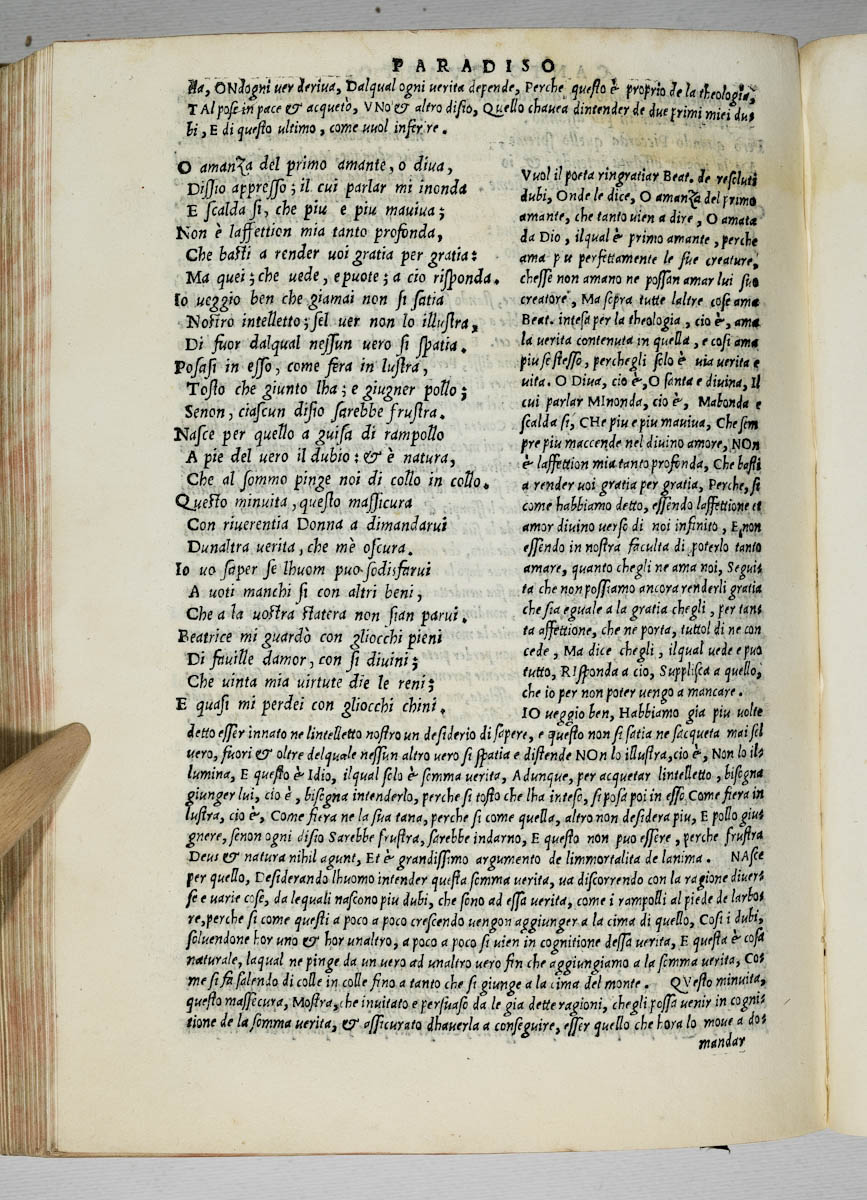 PARADISO
sta, ONdogni ver deriva, Dalqual ogni verita depende, Perche questo è proprio de la theologia,
TAl pose in pace & acquetò, VNo & altro disio, Quello chavea dintender de due primi miei du-
bi, E di questo ultimo, come vuol inferire.
O amanza del primo amante, o diva,
Dissio appresso; il cui parlar mi inonda
E scalda si, che piu e piu maviva;
Non è laffettion mia tanto profonda,
Che basti a render voi gratia per gratia:
Ma quei; che vede, e puote; a cio risponda.
Io veggio ben che giamai non si satia
Nostro intelletto; sel ver non lo illustra,
Di fuor dalqual nessun vero si spatia.
Posasi in esso, come fera in lustra,
Tosto che giunto lha; e giugner pollo;
Senon, ciascun disio sarebbe frustra.
Nasce per quello a guisa di rampollo
A pie del vero il dubio: & è natura,
Che al sommo pinge noi di collo in collo.
Questo minvita, questo massicura
Con riverentia Donna a dimandarvi
Dunaltra verita, che mè oscura.
Io vo saper se lhuom puo sodisfarvi
A voti manchi si con altri beni,
Che a la vostra statera non sian parvi.
Beatrice mi guardò con gliocchi pieni
Di faville damor, con si divini;
Che vinta mia virtute die le reni;
E quasi mi perdei con gliocchi chini.
Vuol il poeta ringratiar Beat. de resoluti
dubi, Onde le dice, O amanza del primo
amante, che tanto vien a dire, O amata
da Dio, ilqual è primo amante, perche
ama piu perfettamente le sue creature,
chesse non amano ne possan amar lui suo
creatore, Ma sopra tutte laltre cose ama
Beat. intesa per la theologia, cio è, ama
la verita contenuta in quella, e cosi ama
piu se stesso, perchegli solo è via verita e
vita. O Diva, cio è, O santa e divina, Il
cui parlar MInonda, cio è, Mabonda e
scalda si, CHe piu e piu maviva, Che sem
pre piu maccende nel divino amore, NOn
è laffettion mia tanto profonda, Che basti
a render voi gratia per gratia, Perche, si
come habbiamo detto, essendo laffettione et
amor divino verso di noi infinito, E non
essendo in nostra faculta di poterlo tanto
amare, quanto chegli ne ama noi, Segui-
ta che non possiamo ancora renderli gratia
che sia eguale a la gratia chegli, per tan-
ta affettione, che ne porta, tuttol di ne con
cede, Ma dice chegli, ilqual vede e puo
tutto, RIsponda a cio, Supplisca a quello,
che io per non poter vengo a mancare.
IO veggio ben, Habbiamo gia piu volte
detto esser innato ne lintelletto nostro un desiderio di sapere, e questo non si satia ne sacqueta mai sel
vero, fuori & oltre delquale nessun altro vero si spatia e distende NOn lo illustra, cio è, Non lo il-
lumina, E questo è Idio, ilqual solo è somma verita, Adunque, per acquetar lintelletto, bisogna
giunger lui, cio è, bisogna intenderlo, perche si tosto che lha inteso, si posa poi in esso Come fiera in
lustra, cio è, Come fiera ne la sua tana, perche si come quella, altro non desidera piu, E pollo giu-
gnere, senon ogni disio Sarebbe frustra, sarebbe indarno, E questo non puo essere, perche frustra
Deus & natura nihil agunt, Et è grandissimo argumento de limmortalita de lanima. NAsce
per quello, Desiderando lhuomo intender questa somma verita, va discorrendo con la ragione diver-
se e varie cose, da lequali nascono piu dubi, che sono ad essa verita, come i rampolli al piede de larbo-
re, perche si come questi a poco a poco crescendo vengon aggiunger a la cima di quello, Cosi i dubi,
solvendone hor uno & hor unaltro, a poco a poco si vien in cognitione dessa verita, E questa è cosa
naturale, laqual ne pinge da un vero ad unaltro vero fin che aggiungiamo a la somma verita, Co-
me si fa salendo di colle in colle fino a tanto che si giunge a la cima del monte. QVesto minvita,
questo massecura, Mostra, che invitato e persuaso da le gia dette ragioni, chegli possa venir in cogni-
tione de la somma verita, & assicurato dhaverla a conseguire, esser quello che hora lo move a do-
mandar